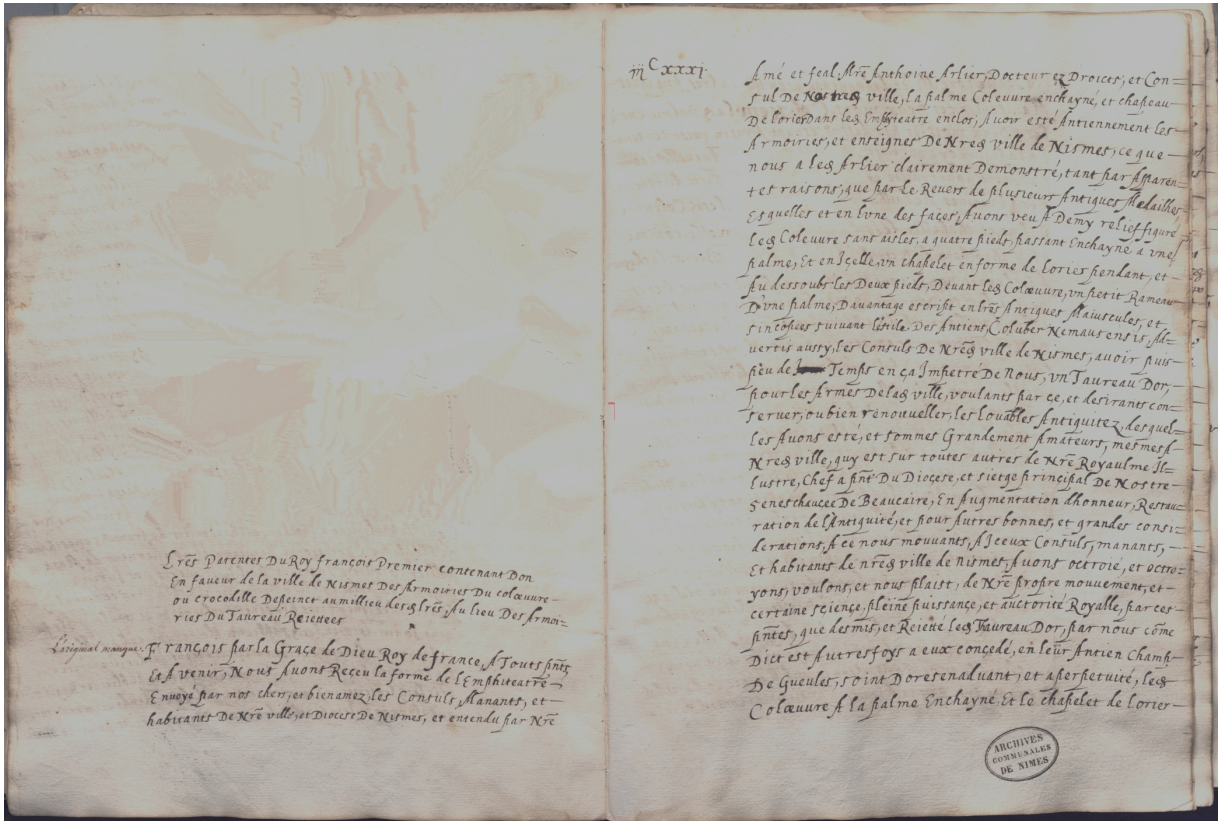 Lrẽs Patentes Du Roy françois Premier contenant Don
En faueur de la ville de Nismes Des Armoiries Du colœuure
ou crocodille Depeinct au millieu desd lrẽs, Au lieu Des Armoi=
ries Du Taureau Reiettees
L'original manque.
François par la Grace de Dieu Roy de france, A Touts pñts
Et A venir, Nous Auons Reçeu la forme de l'Emphiteatre
Enuoyé par nos chers, et bienamez les Consuls, Manants, et
habitants De Nrẽ ville, et Diocese De Nismes, et entendu par Nrẽ
iijᶜxxxj
Amé et feal Mrẽ Anthoine Arlier, Docteur ez Droicts, et Con=
sul De Nostred ville, la palme Coleuure enchayné, et chapeau
De lorier Dans led Emphiteatre enclos, Auoir esté Antiennement les
Armoiries, et enseignes De Nred ville de Nismes, ce que
nous a led Arlier clairement Demonstré, tant par Apparen=
tes raisons, que par le Reuers de plusieurs Antiques Medailhes
Esquelles et en l'vne des faces, Auons veu A Demy relief figuré
led Coleuure sans aisles, a quatre pieds, passant Enchayné a vne
palme, Et en Içelle, vn chapelet en forme de lorier pendant, et
Au dessoubs les Deux pieds, Deuant led Colœuure, vn petit Rameau
D'vne palme, Dauantage escript en lrẽs Antiques Maiuscules, et
sincopées suiuant lestile Des Antiens, Coluber Nemausensis, Ad=
vertis aussy, les Consuls De Nred ville de Nismes, auoir puis
peu de Temps en ça Impetré De Nous, vn Taureau Dor,
pour les Armes De lad ville, voulants par ce, et desirants con=
seruer, ou bien renouueller, les louables Antiquitez, desquel=
les Auons esté, et sommes Grandement Amateurs, mesmes A
Nred ville, quy est sur toutes autres de Nrẽ Royaulme Il=
lustre, Chef a pñt Du Diocese, et siege principal De Nostre
Seneschaucée De Beaucaire, En Augmentation dhonneur, Restau=
ration de l'Antiquité, et pour Autres bonnes, et grandes consi=
derations, A ce nous mouuants, A Iceux Consuls, manants,
Et habitants de nred ville de nismes, Auons octroié, et octro=
yons, voulons, et nous plaist, de Nrẽ propre mouuement, et
certaine science, pleine puissance, et auctorité Royalle, par ces
pñtes, que desmis, et Reietté led Taureau Dor, par nous cõme
Dict est Autresfoys a eux concedé, en leur Antien Champ
De Gueules, soint Doresenaduant, et a perpetuité, led
Colœuure A la palme Enchayné, Et le chapelet de lorier
ARCHIVES
COMMUNALES
DE NIMES